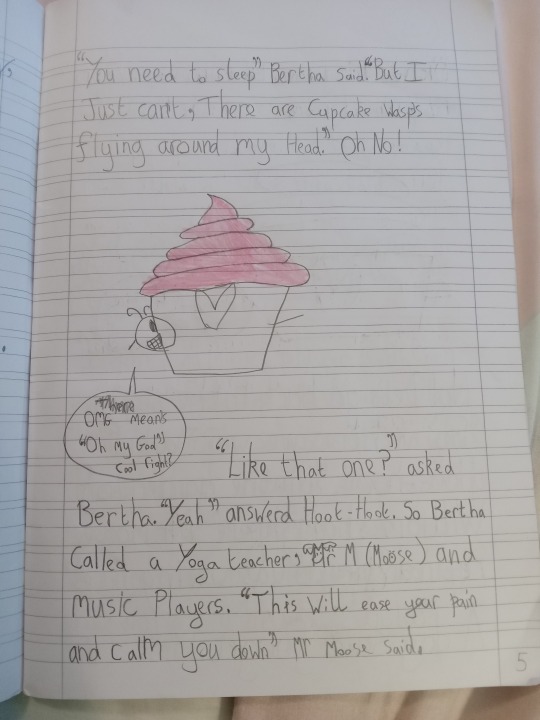 "You need to sleep" Bertha said. "But I
Just can't, There are Cupcake Wasp's
flying around my Head." Oh No!
OMG means
"Oh My God"
Cool right?
"Like that one?" asked
Bertha. "Yeah" answerd Hoot-Hoot. So Bertha
Called a Yoga teacher, Mr M (Moose) and
music Players. "This Will ease your pain
and calm you down" Mr Moose said.
5